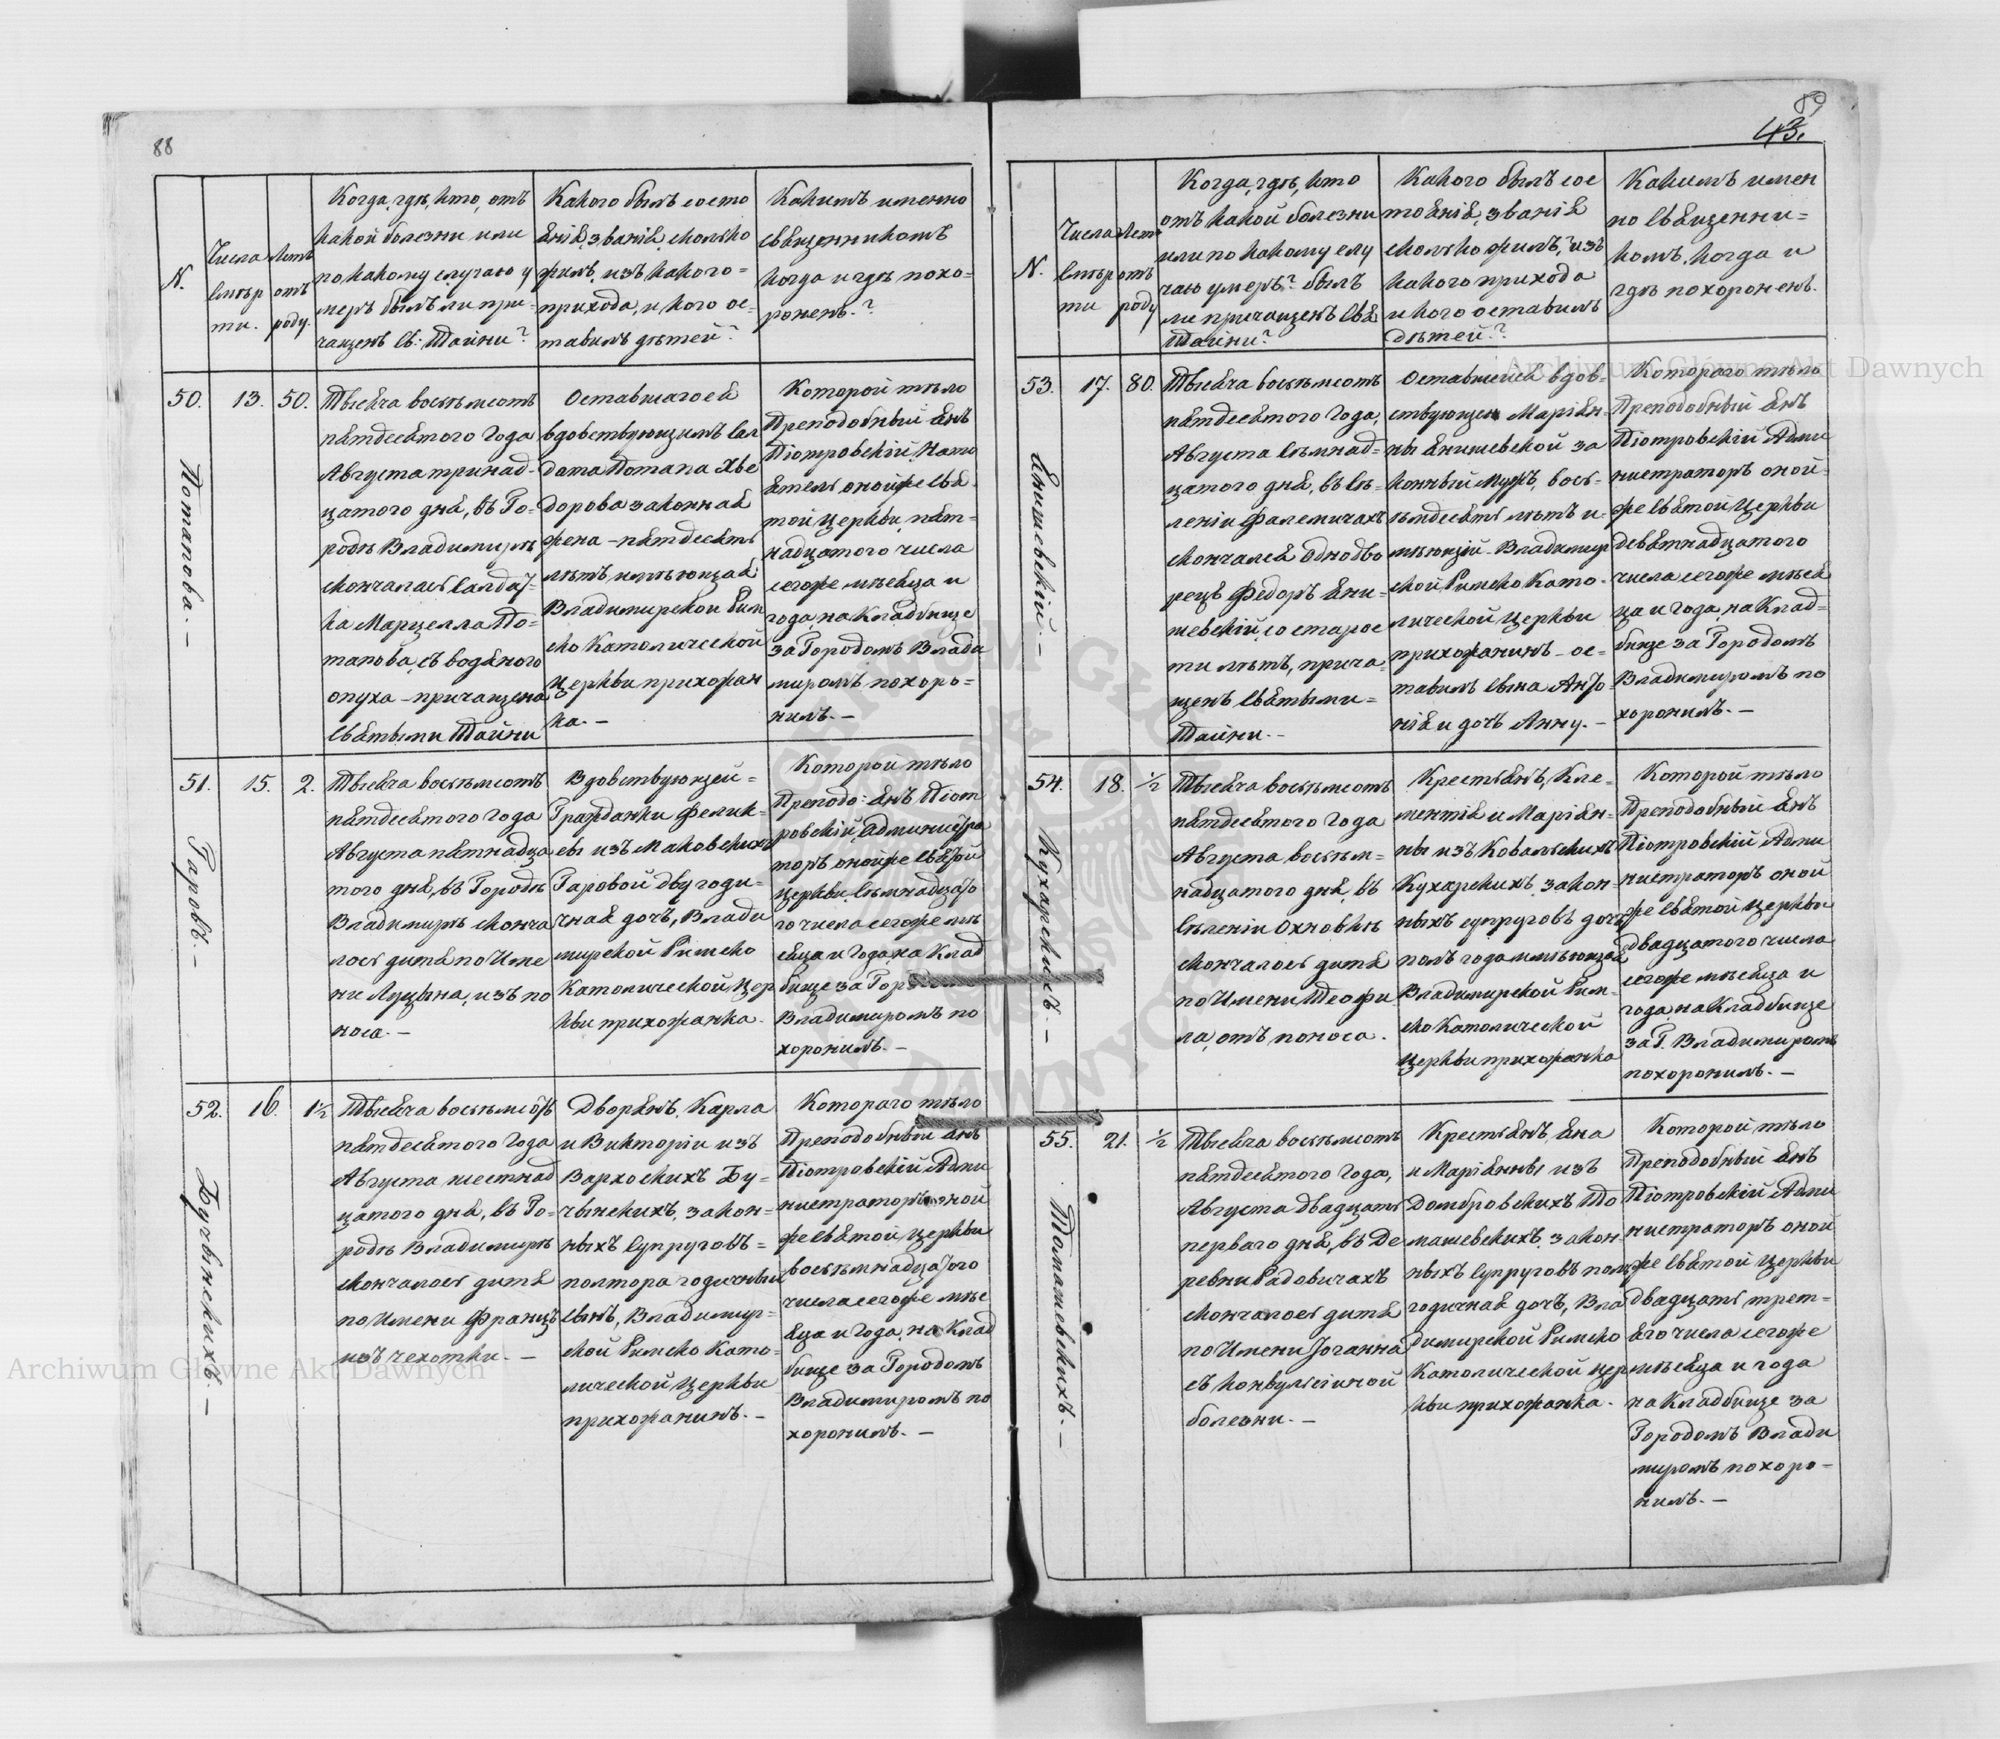 88
N.
Числа
смер
ти.
Лѣтъ
отъ
роду.
Когда, гдѣ, кто, отъ
какой болезни или
по какому случаю у
меръ былъ ли при-
чащенъ св: Тайни?
Какого былъ состо
янія, званія, сколько
жилъ, изъ какого-
прихода, и кого ос-
тавилъ дѣтей?
Какимъ именно
священникомъ
когда и гдѣ похо-
роненъ.?
50.
13.
50.
Потапова. -
Тысяча восѣмсотъ
пятдесятого года
Августа тринад-
цатого дня, въ Го-
родѣ Владимирѣ
скончалась Салдат-
ка Марцелла По-
тапова, съ водяного
опуха - причащена
святыми Тайни
Оставшагося
вдовствующимъ Сал
дата Потапа Хве
дорова законная
жена - пятдесятъ
лѣтъ имѣющая
Владимирской Рим
ско Католической
Церкви прихожан
ка. -
Которой тѣло
Преподобный Янъ
Піотровскій,
онойже свя-
той Церкви, пят-
надцатого числа
сегоже мѣсяца и
года, на Кладбище
за Городомъ Влади
миромъ похоро-
нилъ. -
51.
15.
2.
Гаровъ. -
Тысяча восѣмсотъ
пятдесятого года
Августа пятнадца
того дня, въ Городѣ
Владимирѣ сконча
лось дитя по Име
ни Луцына, изъ по
носа. -
Вдовствующей -
Гражданки Фелик-
сы изъ Маковскихъ
Гаровой двугоди-
чная дочъ, Влади
мирской Римско
Католической Цер
кви прихожанка.
Которой тѣло
Преподо: Янъ Піот
ровскій, Администра
торъ онойже святой
Церкви, сѣмнадцато
го числа сегоже мѣ
сяца и Года, на Клад
бище за Гор
Владимиромъ по
хоронилъ. -
52.
16.
1½
Бучынскихъ. -
Тысяча восѣмсотъ
пятдесятого года
Августа шестнад
цатого дня, въ Го-
родѣ Владимирѣ
скончалось дитя
по Имени Францъ
изъ чехотки. -
Дворянъ, Карла
и Викторіи изъ
Вархоскихъ Бу-
чынскихъ, закон-
ныхъ Супруговъ -
полтора годичный
сынъ, Владимир-
ской Римско Като-
лической Церкви
прихожанинъ. -
Котораго тѣло
Преподобный Янъ
Піотровскій, Адми
нистраторъ оной
же святой Церкви
восѣмнадцатого
числа сегоже мѣс
яца и Года, на Клад
бище за Городомъ
Владимиромъ по
хоронилъ. -
89
43.
N.
Числа
смер
ти
Лет
отъ
роду
Когда, гдѣ, кто
отъ какой болезни
или по какому слу
чаю умеръ? былъ
ли причащенъ свя
Тайни?
Какого былъ сос
тоянія, званія
сколько жилъ, изъ
какого прихода
и кого оставилъ
дѣтей?
Какимъ имен
но священни-
комъ, когда и
гдѣ похороненъ.
53.
17.
80.
Янишевскій. -
Тысяча восѣмсотъ
пятдесятого года,
Августа сѣмнад-
цатого дня, въ се-
леніи Фалемичахъ
скончался Однодво
рецъ Федоръ Яни-
шевскій, со старос
ти лѣтъ, прича-
щенъ святыми -
Тайни. -
Оставшейся вдов-
ствующей Маріян-
ны Янишевской за
конный мужъ, вось-
ьмдесятъ лѣтъ и-
мѣющій - Владимир
ской Римско Като-
лической Церкви
прихожанинъ - ос-
тавилъ сына Анто-
нія и дочъ Анну. -
Котораго тѣло
Преподобный Янъ
Піотровскій Адми
нистраторъ оной-
же святой Церкви
девятнадцатого
числа сегоже мѣся
ца и года, на Клад-
бище за Городомъ
Владимиромъ по
хоронилъ. -
54.
18.
½
Кухарскихъ. -
Тысяча восѣмсотъ
пятдесятого года
Августа восѣм-
надцатого дня, въ
селеніи Охновкѣ
скончалось дитя
по Имени Теофи
ла, отъ поноса.
Крестьянъ, Кле-
ментія и Маріян-
ны изъ Ковальскихъ
Кухарскихъ, закон-
ныхъ супруговъ дочъ
полъ года имѣющая
Владимирской Рим-
ско Католической
Церкви прихожанка
Которой тѣло
Преподобный Янъ
Піотровскій Адми
нистраторъ оной
же святой Церкви
двадцатого числа
сегоже мѣсяца и
года, на Кладбище
за Г. Владимиромъ
похоронилъ. -
55.
21.
½
Томашевскихъ. -
Тысяча восѣмсотъ
пятдесятого года,
Августа двадцать
перваго дня, въ Де
ревни Радовичахъ
скончалось дитя
по Имени Іоанна
съ конвульсійной
болезни. -
Крестьянъ, Яна
и Маріянны изъ
Домбровскихъ То
машевскихъ, закон
ныхъ Супруговъ полъ
годичная дочъ, Вла
димирской Римско
Католической Цер
кви прихожанка.
Которой тѣло
Преподобный Янъ
Піотровскій Адми
нистраторъ оной
же святой Церкви
двадцать трет-
яго числа сегоже
мѣсяца и года
на Кладбище за
Городомъ Влади
миромъ похоро-
нилъ. -
Archiwum Główne Akt Dawnych
Archiwum Główne Akt Dawnych